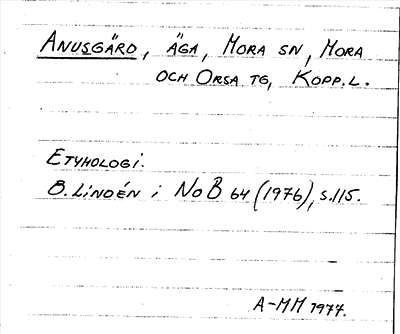 ANUSGÄRD, ÄGA, MORA SN, MORA
OCH ORSA TG, KOPP.L.
ETYMOLOGI.
B. LINDÉN i NoB 64 (1976), S.115.
A-MM 1977.